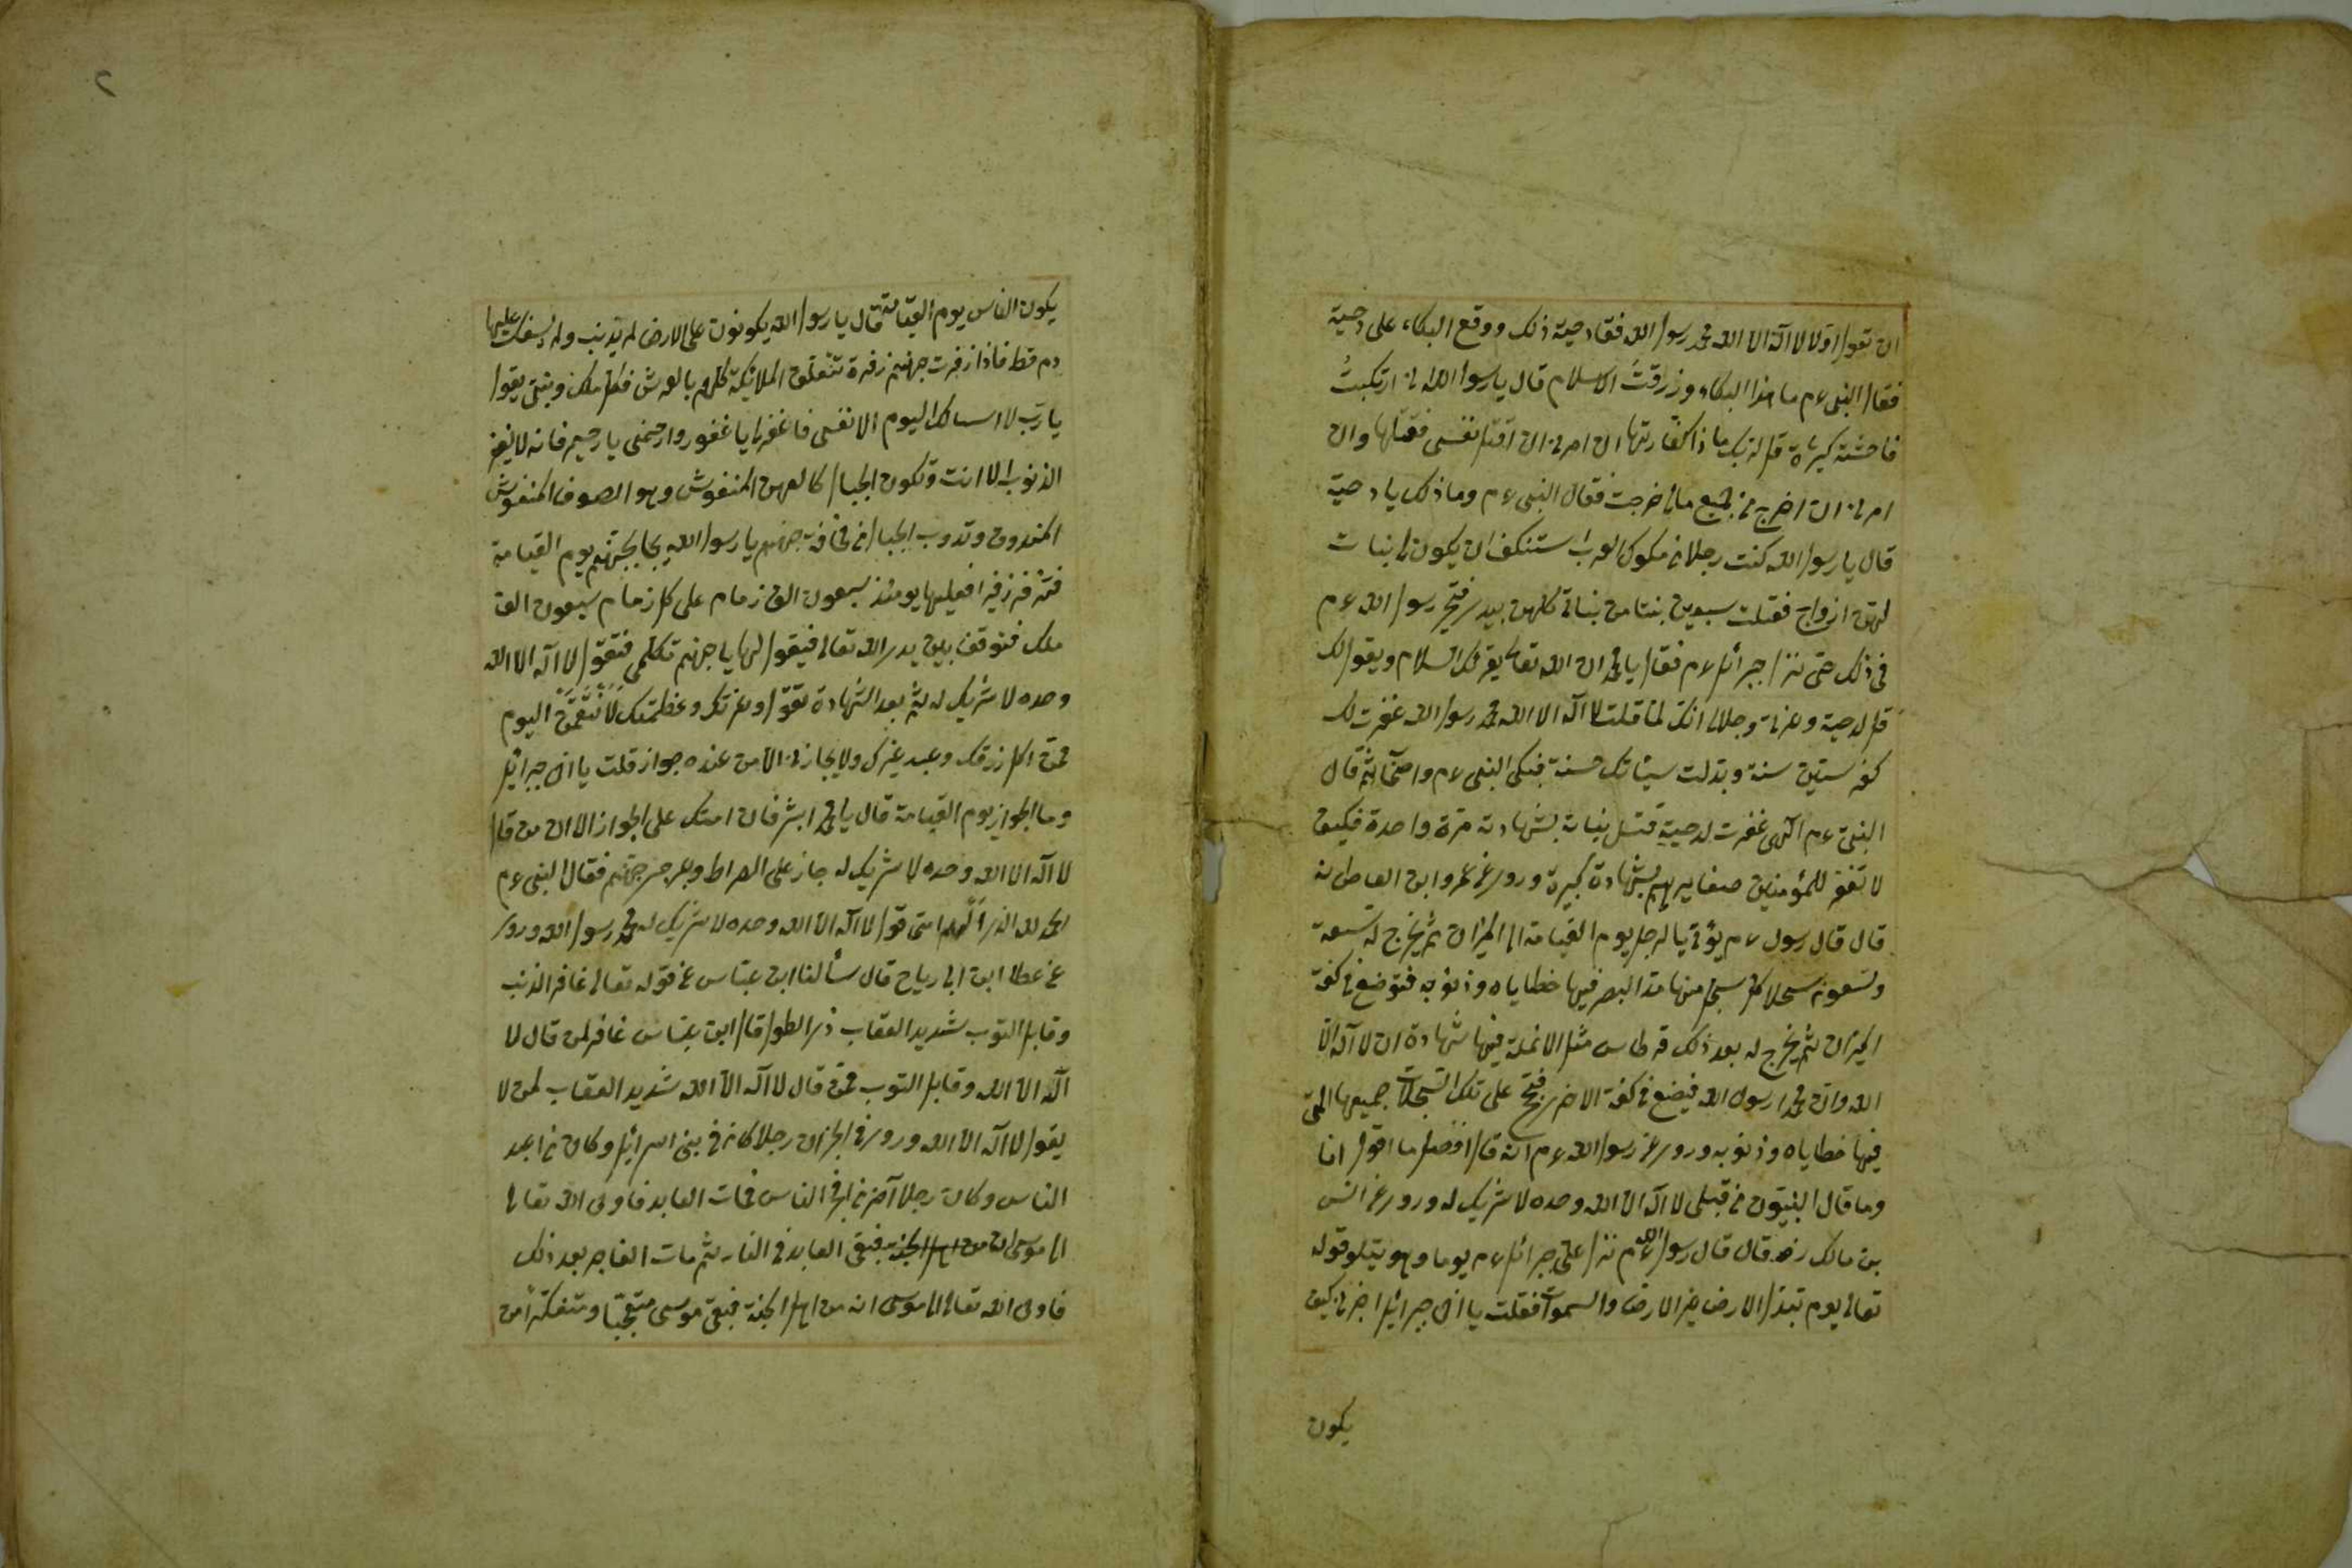 ان تقول اولا لا اله الا الله محمد رسول الله فقال دحية ذلك ووقع البكاء على دحية
فقال النبى عم ما هذا البكاء وزرقت الاسلام قال يا رسول الله انى ارتكبت
فاحشة كبيرة قل لربك ما ذا كفارتها ان امرنى ان اقتل نفسى فقتلها وان
امرنى ان اخرج من جميع مالى خرجت فقال النبى عم وما ذلك يا دحية
قال يا رسول الله كنت رجلا من ملوك العرب استنكف ان يكون لى بنات
لهن ازواج فقتلت سبعين بنتا من بناتى كلهن بيدى فتحير رسول الله عم
فى ذلك حتى نزل جبرائل عم فقال يا محمد ان الله تعالى يقرئك السلام ويقول لك
قل لدحية وعزتى وجلالى انك لما قلت لا اله الا الله محمد رسول الله غفرت لك
كفر ستين سنة وبدلت سيئاتك حسنة فبكى النبى عم واصحابه ثم قال
النبى عم الهى غفرت لدحية قتل بناته بشهادته مرة واحدة فكيف
لا تغفر للمؤمنين صغايرهم بشهادة كبيرة وروى عن عمرو ابن العاص انه
قال قال رسول عم يؤتى بالرجل يوم القيامة الى الميزان ثم يخرج له تسعة
وتسعون سجلا كل سجل منها مد البصر فيها خطاياه وذنوبه فتوضع فى كفة
الميزان ثم يخرج له بعد ذلك قرطاس مثل الانملة فيها شهادة ان لا اله الا
الله وان محمدا رسول الله فيضع فى كفة الاخرى على تلك السجلات جميعها التى
فيها خطاياه وذنوبه وروى عن رسول الله عم انه قال افضل ما اقول انا
وما قال النبيون من قبلى لا اله الا الله وحده لا شريك له وروى عن انس
بن مالك رضه قال قال رسول الله عم نزل على جبرائل عم يوما وهو يتلو قوله
تعالى يوم تبدل الارض غير الارض والسموات فقلت يا اخى جبرائيل اخبرنى كيف
يكون
٢
يكون الناس يوم القيامة قال يا رسول الله يكونون على الارض لم يذنب ولم يسفك عليها
دم قط فاذا زفرت جهنم زفرة تتعلق الملائكة كلهم بالعرش فكل ملك ونبى يقول
يا رب لا اسالك اليوم الا نفسى فاغفر لى يا غفور وارحمنى يا رحيم فانه لا يغفر
الذنوب الا انت وتكون الجبال كالعهن المنفوش وهو الصوف المنفوش
المندوف وتذوب الجبال من مخافة جهنم يا رسول الله يجا بجهنم يوم القيامة
فتزفر زفيرا فعليها يومئذ سبعون الف زمام على كل زمام سبعون الف
ملك فتوقف بين يدى الله تعالى فيقول لها يا جهنم تكلمى فتقول لا اله الا الله
وحده لا شريك له ثم بعد الشهادة تقول وعزتك وعظمتك لانتقمن اليوم
ممن اكل رزقك وعبد غيرك ولا يجازنى الا من عنده جواز قلت يا اخى جبرائيل
وما الجواز يوم القيامة قال يا محمد ابشر فان امتك على الجواز الا ان من قال
لا اله الا الله وحده لا شريك له جاز على الصراط وعبر جسر جهنم فقال النبى عم
الحمد لله الذى الهم امتى قول لا اله الا الله وحده لا شريك له محمد رسول الله وروى
عن عطا ابن ابى رباح قال سألنا ابن عباس عن قوله تعالى غافر الذنب
وقابل التوب شديد العقاب ذى الطول قال ابن عباس غافر لمن قال لا
اله الا الله وقابل التوب ممن قال لا اله الا الله شديد العقاب لمن لا
يقول لا اله الا الله وروى فى الخبر ان رجلا كان فى بنى اسرائيل وكان من اعبد
الناس وكان رجلا آخر من افجر الناس فمات العابد فاوحى الله تعالى
الى موسى ان من اهل الجنة فبقى العابد فى النار ثم مات الفاجر بعد ذلك
فاوحى الله تعالى الى موسى انه من اهل الجنة فبقى موسى متعجبا ومتفكرا من